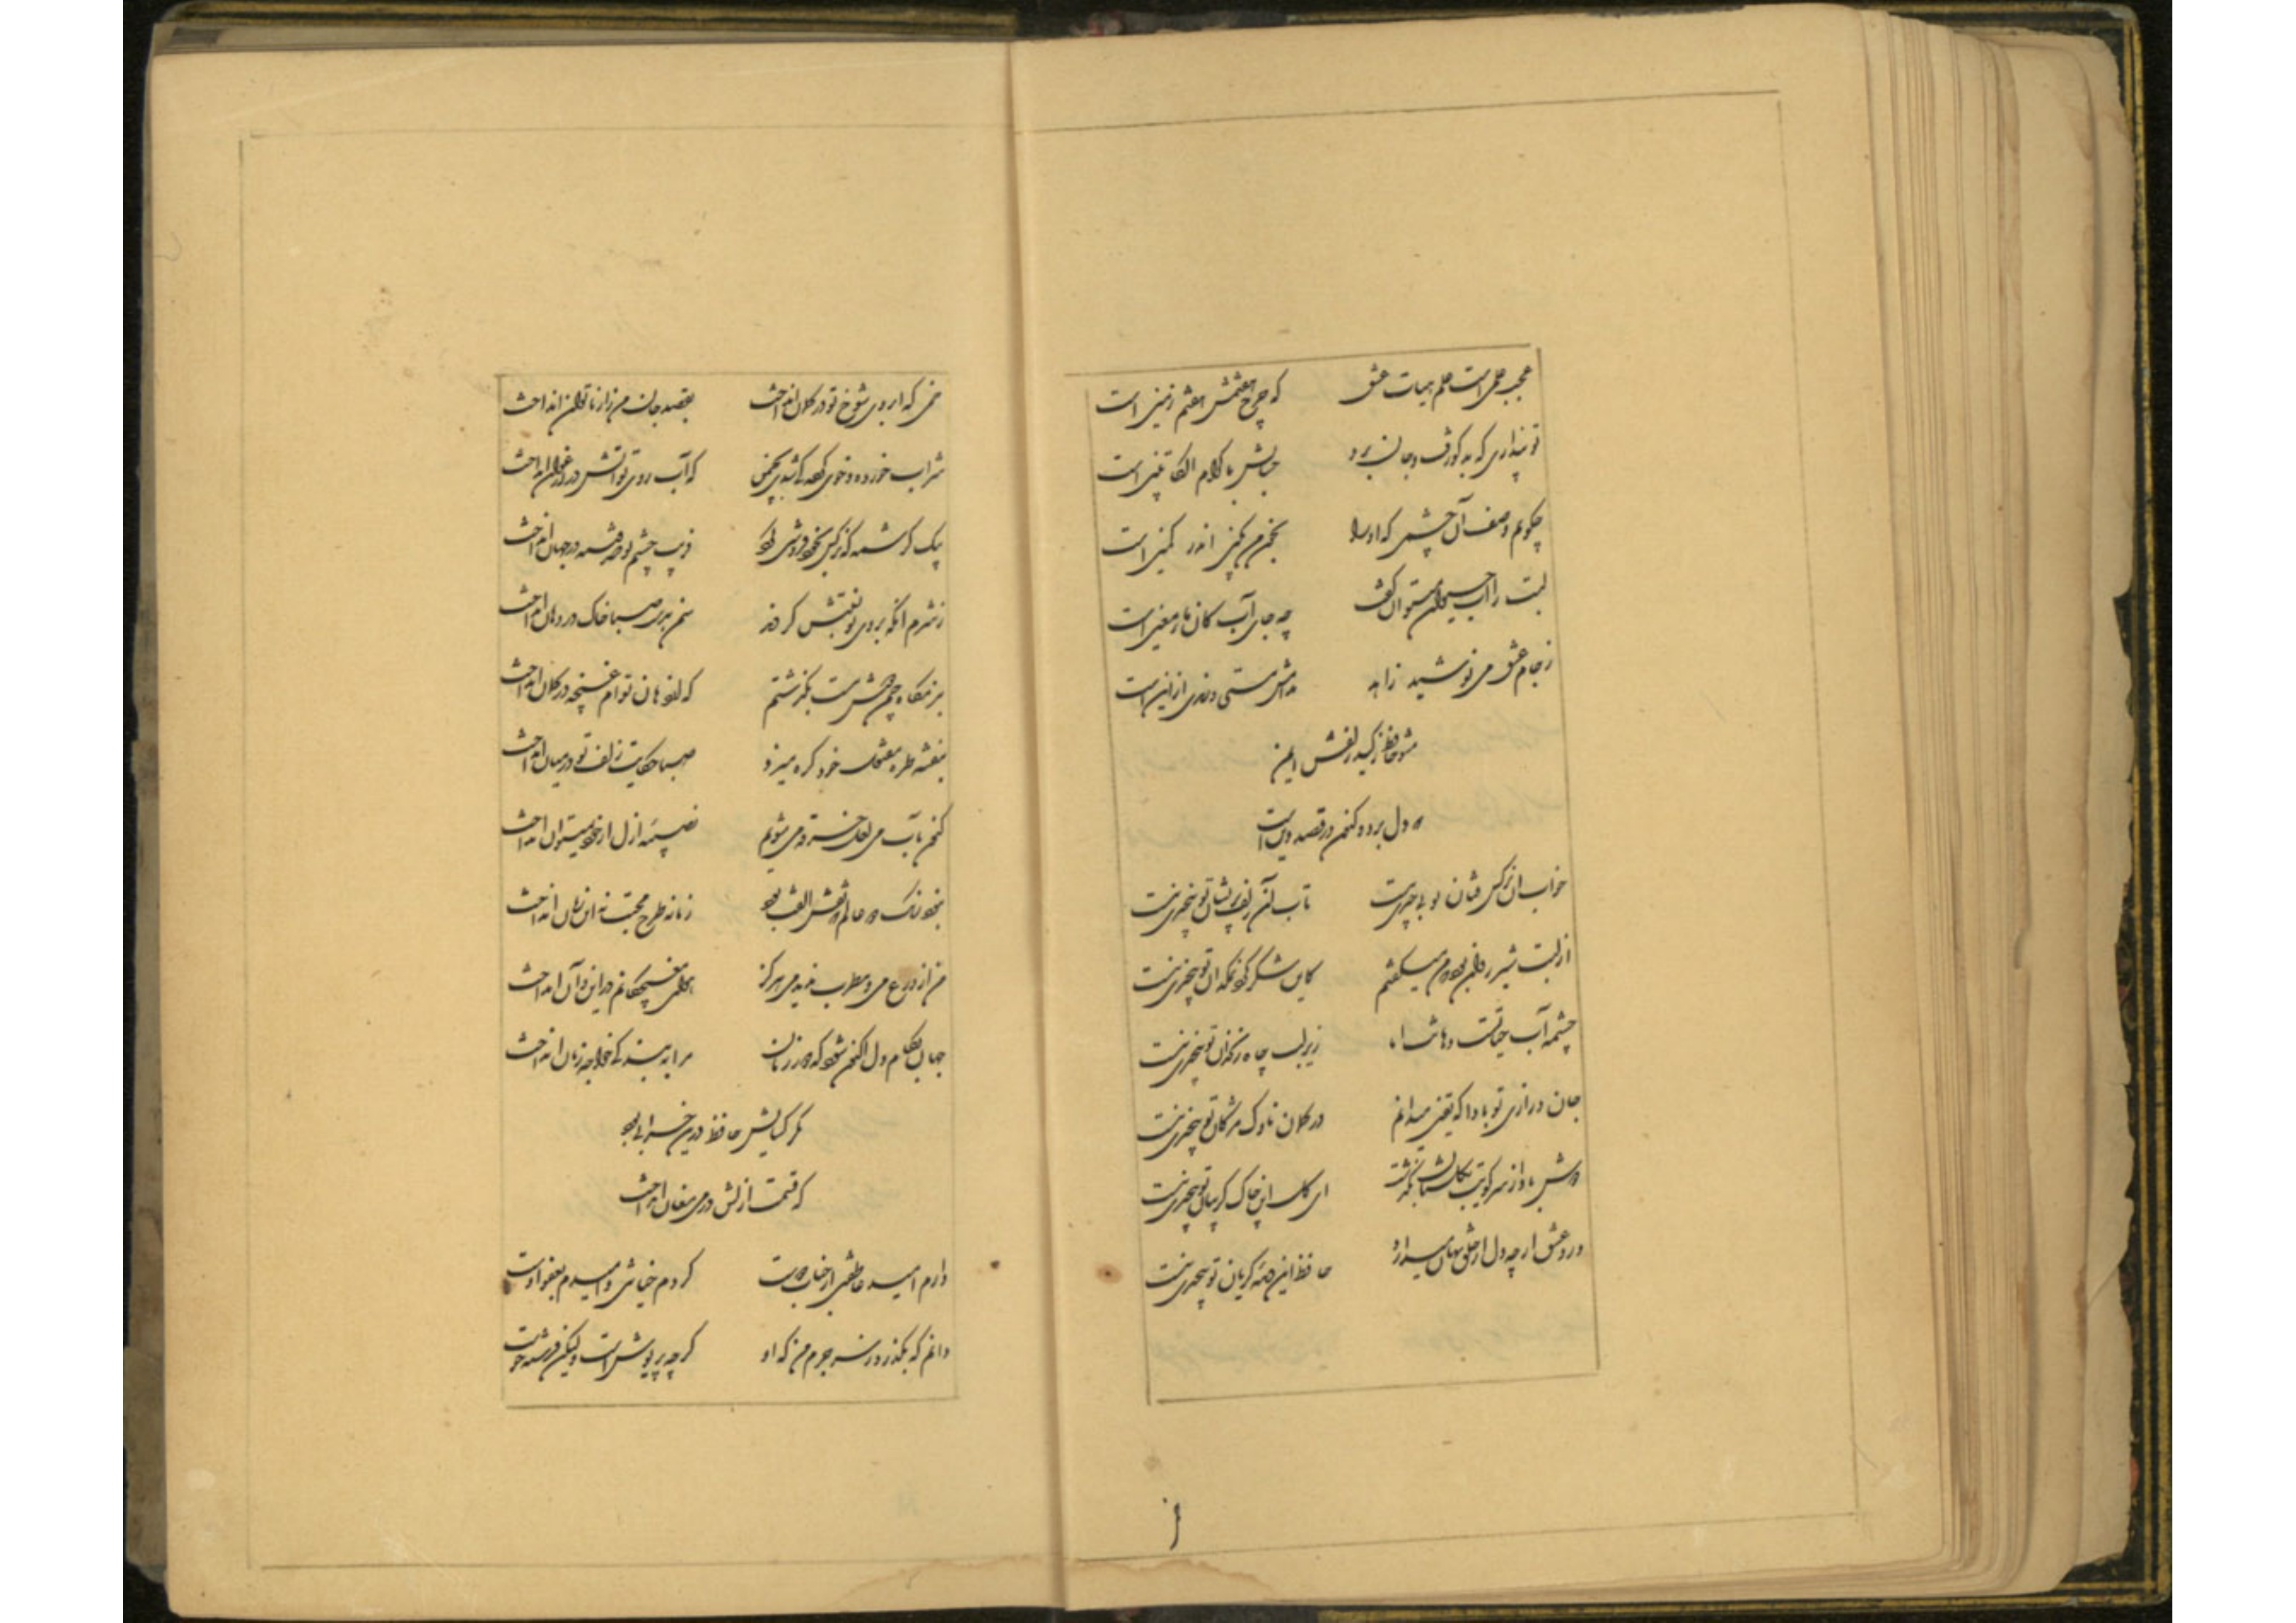 عجب علمی است علم هیات عشق که چرخ هفتمش هفتم زمین است
تو پنداری که بد گو رفت و جان برد حسابش با کرام الکاتبین است
چگویم وصف آن چشمی که او را بخون من کمین اندر کمین است
لبت را آب حیوان میتوان گفت چه جای آب کان ماء معین است
ز جام عشق می نوشید زاهد مستی و رندی از این است
مشو حافظ ز کید زلفش ایمن
که دل برد و کنون در قصد دین است
خواب آن نرگس فتان تو بی چیزی نیست تاب آن زلف پریشان تو بیچیزی نیست
از لبت شیر روان بود که من میگفتم کاین شکر گرد نمکدان تو بیچیزی نیست
چشمه آب حیاتست دهانت اما زیر لب چاه زنخدان تو بیچیزی نیست
جان درازی تو بادا که یقین میدانم در کمان ناوک مژگان تو بیچیزی نیست
دوش باد از سر کویت بگلستان بگذشت ای گل این چاک گریبان تو بیچیزی نیست
درد عشق ار چه دل از خلق نهان میدارد حافظ این دیده گریان تو بیچیزی نیست
خمی که ابروی شوخ تو در کمان انداخت بقصد جان من زار ناتوان انداخت
شراب خورده و خوی کرده کی شدی بچمن که آب روی تو آتش در ارغوان انداخت
بیک کرشمه که نرگس بخودفروشی کرد فریب چشم تو صد فتنه در جهان انداخت
ز شرم آنکه بروی تو نسبتش کردند سمن بدست صبا خاک در دهان انداخت
ببزمگاه چمن دوش مست بگذشتم که از دهان توام غنچه در گمان انداخت
بنفشه طره مفتول خود گره میزد صبا حکایت زلف تو در میان انداخت
کنون بآب می لعل خرقه می شویم نصیبه ازل از خود نمیتوان انداخت
نبود رنگ دو عالم که نقش الفت بود زمانه طرح محبت نه این زمان انداخت
من از ورع می و مطرب ندیدمی هرگز هوای مغبچگانم در این و آن انداخت
جهان بکام دل اکنون شود که دور زمان مرا به بندگی خواجه زمان انداخت
مگر گشایش حافظ درین خرابی بود
که قسمت ازلش در می مغان انداخت
دارم امید عاطفتی از جناب دوست کردم خیانتی و امیدم بعفو اوست
دانم که بگذرد ز سر جرم من که او گرچه پریوش است ولیکن فرشته خوست